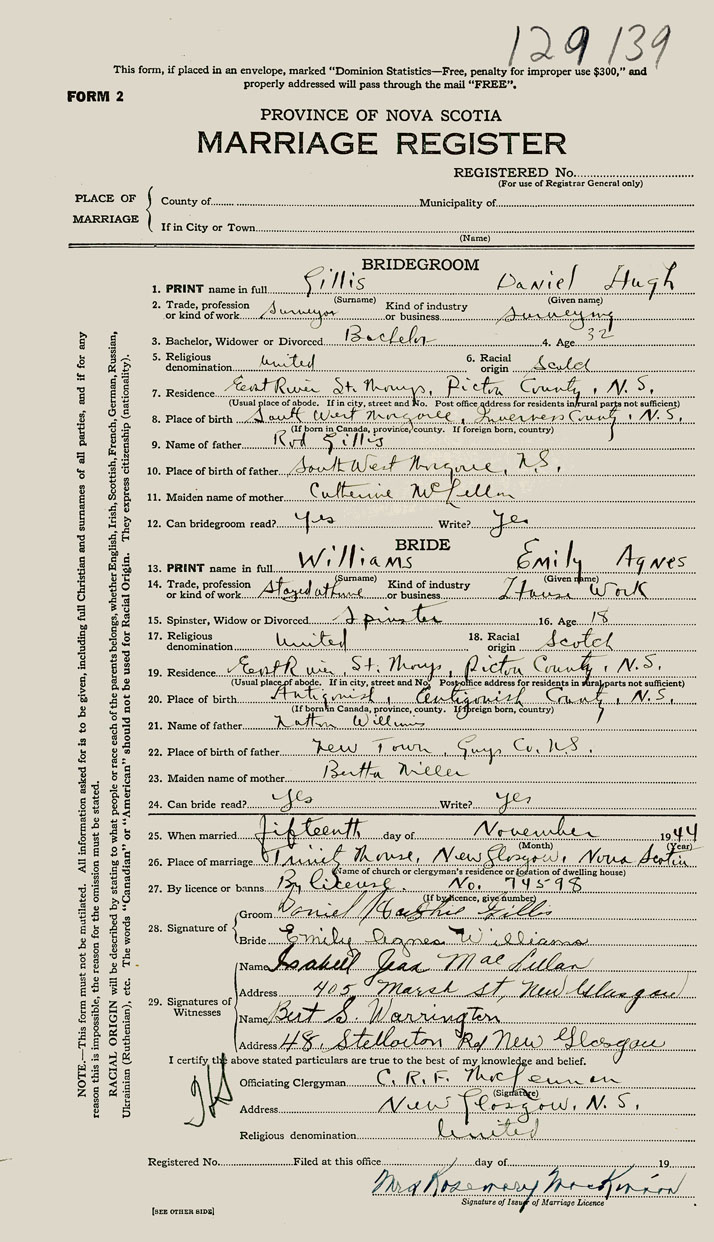 129 139
This form, if placed in an envelope, marked "Dominion Statistics—Free, penalty for improper use $300," and
properly addressed will pass through the mail "FREE".
FORM 2
PROVINCE OF NOVA SCOTIA
MARRIAGE REGISTER
REGISTERED No.
(For use of Registrar General only)
PLACE OF MARRIAGE
County of Municipality of
If in City or Town
(Name)
BRIDEGROOM
1. PRINT name in full Gillis Daniel Hugh
(Surname) (Given name)
2. Trade, profession or kind of work Surveyor Kind of industry or business Surveying
3. Bachelor, Widower or Divorced Bachelor 4. Age 32
5. Religious denomination United 6. Racial origin
7. Residence East River St. Marys, Pictou County, N.S.
(Usual place of abode. If in city, street and No. Post office address for residents in rural parts not sufficient)
8. Place of birth South West Margaree, Inverness County, N.S.
(If born in Canada, province, county. If foreign born, country)
9. Name of father Rod Gillis
10. Place of birth of father South West Margaree, N.S.
11. Maiden name of mother Catherine McLellan
12. Can bridegroom read? Yes Write? Yes
BRIDE
13. PRINT name in full Williams Emily Agnes
(Surname) (Given name)
14. Trade, profession or kind of work Stayed at home Kind of industry or business House Work
15. Spinster, Widow or Divorced Spinster 16. Age 18
17. Religious denomination United 18. Racial origin Scotch
19. Residence East River, St. Marys, Pictou County, N.S.
(Usual place of abode. If in city, street and No. Post office address for residents in rural parts not sufficient)
20. Place of birth Antigonish, Antigonish County, N.S.
(If born in Canada, province, county. If foreign born, country)
21. Name of father Williams
22. Place of birth of father New Town, Guys Co. N.S.
23. Maiden name of mother Bertha Miller
24. Can bride read? Yes Write? Yes
25. When married fifteenth day of November 1944
(Month) (Year)
26. Place of marriage Trinity Manse, New Glasgow, Nova Scotia
(Name of church or clergyman's residence or location of dwelling house)
27. By licence or banns By license. No. 74598
(If by licence, give number)
28. Signature of
Groom Daniel Gillis
Bride Emily Agnes Williams
29. Signatures of Witnesses
Name Isabell Jean MacLellan
Address 405 Marsh St, New Glasgow
Name Bert S. Warrington
Address 48 Stellarton Rd New Glasgow
I certify the above stated particulars are true to the best of my knowledge and belief.
Officiating Clergyman C. R. F. MacLennan
(Signature)
Address New Glasgow, N.S.
Religious denomination United
Registered No. Filed at this office day of 19
Mrs Rosemary MacKinnon
Signature of Issuer of Marriage Licence
[SEE OTHER SIDE]
NOTE.—This form must not be mutilated. All information asked for is to be given, including full Christian and surnames of all parties, and if for any
reason this is impossible, the reason for the omission must be stated.
RACIAL ORIGIN will be described by stating to what people or race each of the parents belongs, whether English, Irish, Scottish, French, German, Russian,
Ukrainian (Ruthenian), etc. The words "Canadian" or "American" should not be used for Racial Origin. They express citizenship (nationality).